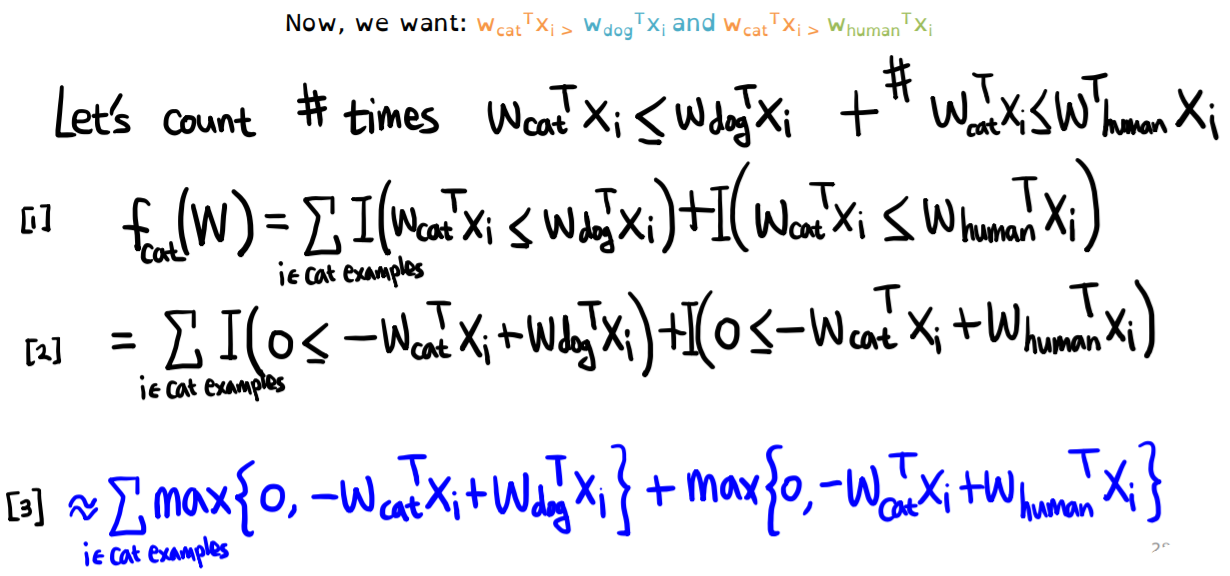 Now, we want: w_cat^T x_i > w_dog^T x_i and w_cat^T x_i > w_human^T x_i
Let's count # times w_cat^T x_i ≤ w_dog^T x_i + # w_cat^T x_i ≤ w^T_human x_i
[1] f_cat(W) = ∑_{i∈ cat examples} I(w_cat^T x_i ≤ w_dog^T x_i) + I(w_cat^T x_i ≤ w_human^T x_i)
[2] = ∑_{i∈ cat examples} I(0 ≤ -w_cat^T x_i + w_dog^T x_i) + I(0 ≤ -w_cat^T x_i + w_human^T x_i)
[3] ≈ ∑_{i∈ cat examples} max{0, -w_cat^T x_i + w_dog^T x_i} + max{0, -w_cat^T x_i + w_human^T x_i}